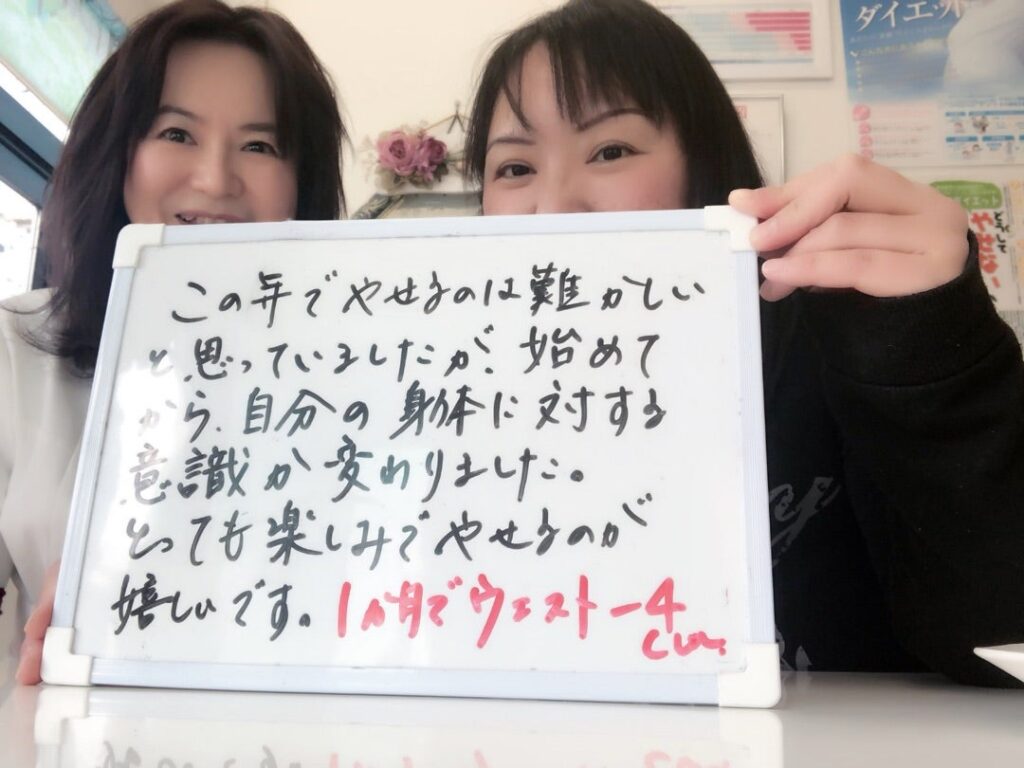 ダイエット
ダイエット
どうして
やせない
この年でやせるのは難かしい
と思っていましたが、始めて
から、自分の身体に対する
意識が変わりました。
とっても楽しみでやせるのが
嬉しいです。1か月でウエスト-4cm